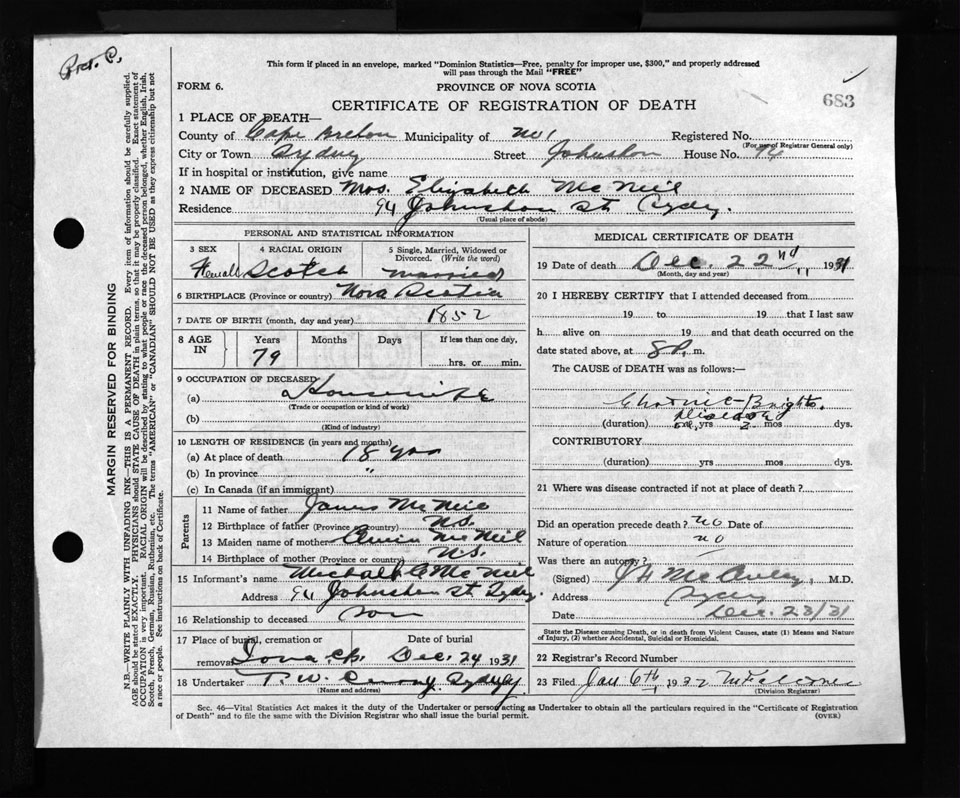 Pret. P.
This form if placed in an envelope, marked "Dominion Statistics—Free, penalty for improper use, $300," and properly addressed
will pass through the Mail "FREE"
FORM 6.
PROVINCE OF NOVA SCOTIA
683
CERTIFICATE OF REGISTRATION OF DEATH
1 PLACE OF DEATH—
County of Cape Breton Municipality of No 1 Registered No.
(For use of Registrar General only)
City or Town Sydney Street Johnston House No. 94
If in hospital or institution, give name
2 NAME OF DECEASED Mrs. Elizabeth McNeil
Residence 94 Johnston St Sydney.
(Usual place of abode)
PERSONAL AND STATISTICAL INFORMATION
3 SEX Female
4 RACIAL ORIGIN Scotch
5 Single, Married, Widowed or Divorced. (Write the word) married
6 BIRTHPLACE (Province or country) Nova Scotia
7 DATE OF BIRTH (month, day and year) 1852
8 AGE IN Years 79 Months Days If less than one day, hrs. or min.
9 OCCUPATION OF DECEASED
(a) Housewife
(Trade or occupation or kind of work)
(b)
(Kind of industry)
10 LENGTH OF RESIDENCE (in years and months)
(a) At place of death 18 yrs
(b) In province "
(c) In Canada (if an immigrant)
Parents
11 Name of father James McNeil
12 Birthplace of father (Province or country) N.S.
13 Maiden name of mother McNeil
14 Birthplace of mother (Province or country) N.S.
15 Informant's name Michael McNeil
Address 94 Johnston St. Sydney.
16 Relationship to deceased son
17 Place of burial, cremation or removal Iona, C.B. Date of burial Dec. 24 1931
18 Undertaker T. W. Curry, Sydney
(Name and address)
MEDICAL CERTIFICATE OF DEATH
19 Date of death Dec. 22nd, 1931
(Month, day and year)
20 I HEREBY CERTIFY that I attended deceased from
19 to 19 that I last saw
h alive on 19 and that death occurred on the
date stated above, at 8 P. m.
The CAUSE of DEATH was as follows:—
Chronic Brights
Disease
(duration) yrs 2 mos dys.
CONTRIBUTORY
(duration) yrs mos dys.
21 Where was disease contracted if not at place of death?
Did an operation precede death? no Date of
Nature of operation no
Was there an autopsy?
(Signed) McAuley, M.D.
Address Sydney
Date Dec. 23/31
State the Disease causing Death, or in death from Violent Causes, state (1) Means and Nature
of Injury, (2) whether Accidental, Suicidal or Homicidal.
22 Registrar's Record Number
23 Filed Jan 6th, 1932
(Division Registrar)
Sec. 46—Vital Statistics Act makes it the duty of the Undertaker or person acting as Undertaker to obtain all the particulars required in the "Certificate of Registration
of Death" and to file the same with the Division Registrar who shall issue the burial permit.
(OVER)
MARGIN RESERVED FOR BINDING
N.B.—WRITE PLAINLY WITH UNFADING INK—THIS IS A PERMANENT RECORD. Every item of information should be carefully supplied.
AGE should be stated EXACTLY. PHYSICIANS should STATE CAUSE OF DEATH in plain terms, so that it may be properly classified. Exact statement of
OCCUPATION is very important. RACIAL ORIGIN will be described by stating to what people or race the deceased person belonged, whether English, Irish,
Scotch, French, German, Russian, Ruthenian, etc. The terms "AMERICAN" or "CANADIAN" SHOULD NOT BE USED as they express citizenship but not
a race or people. See instructions on back of Certificate.